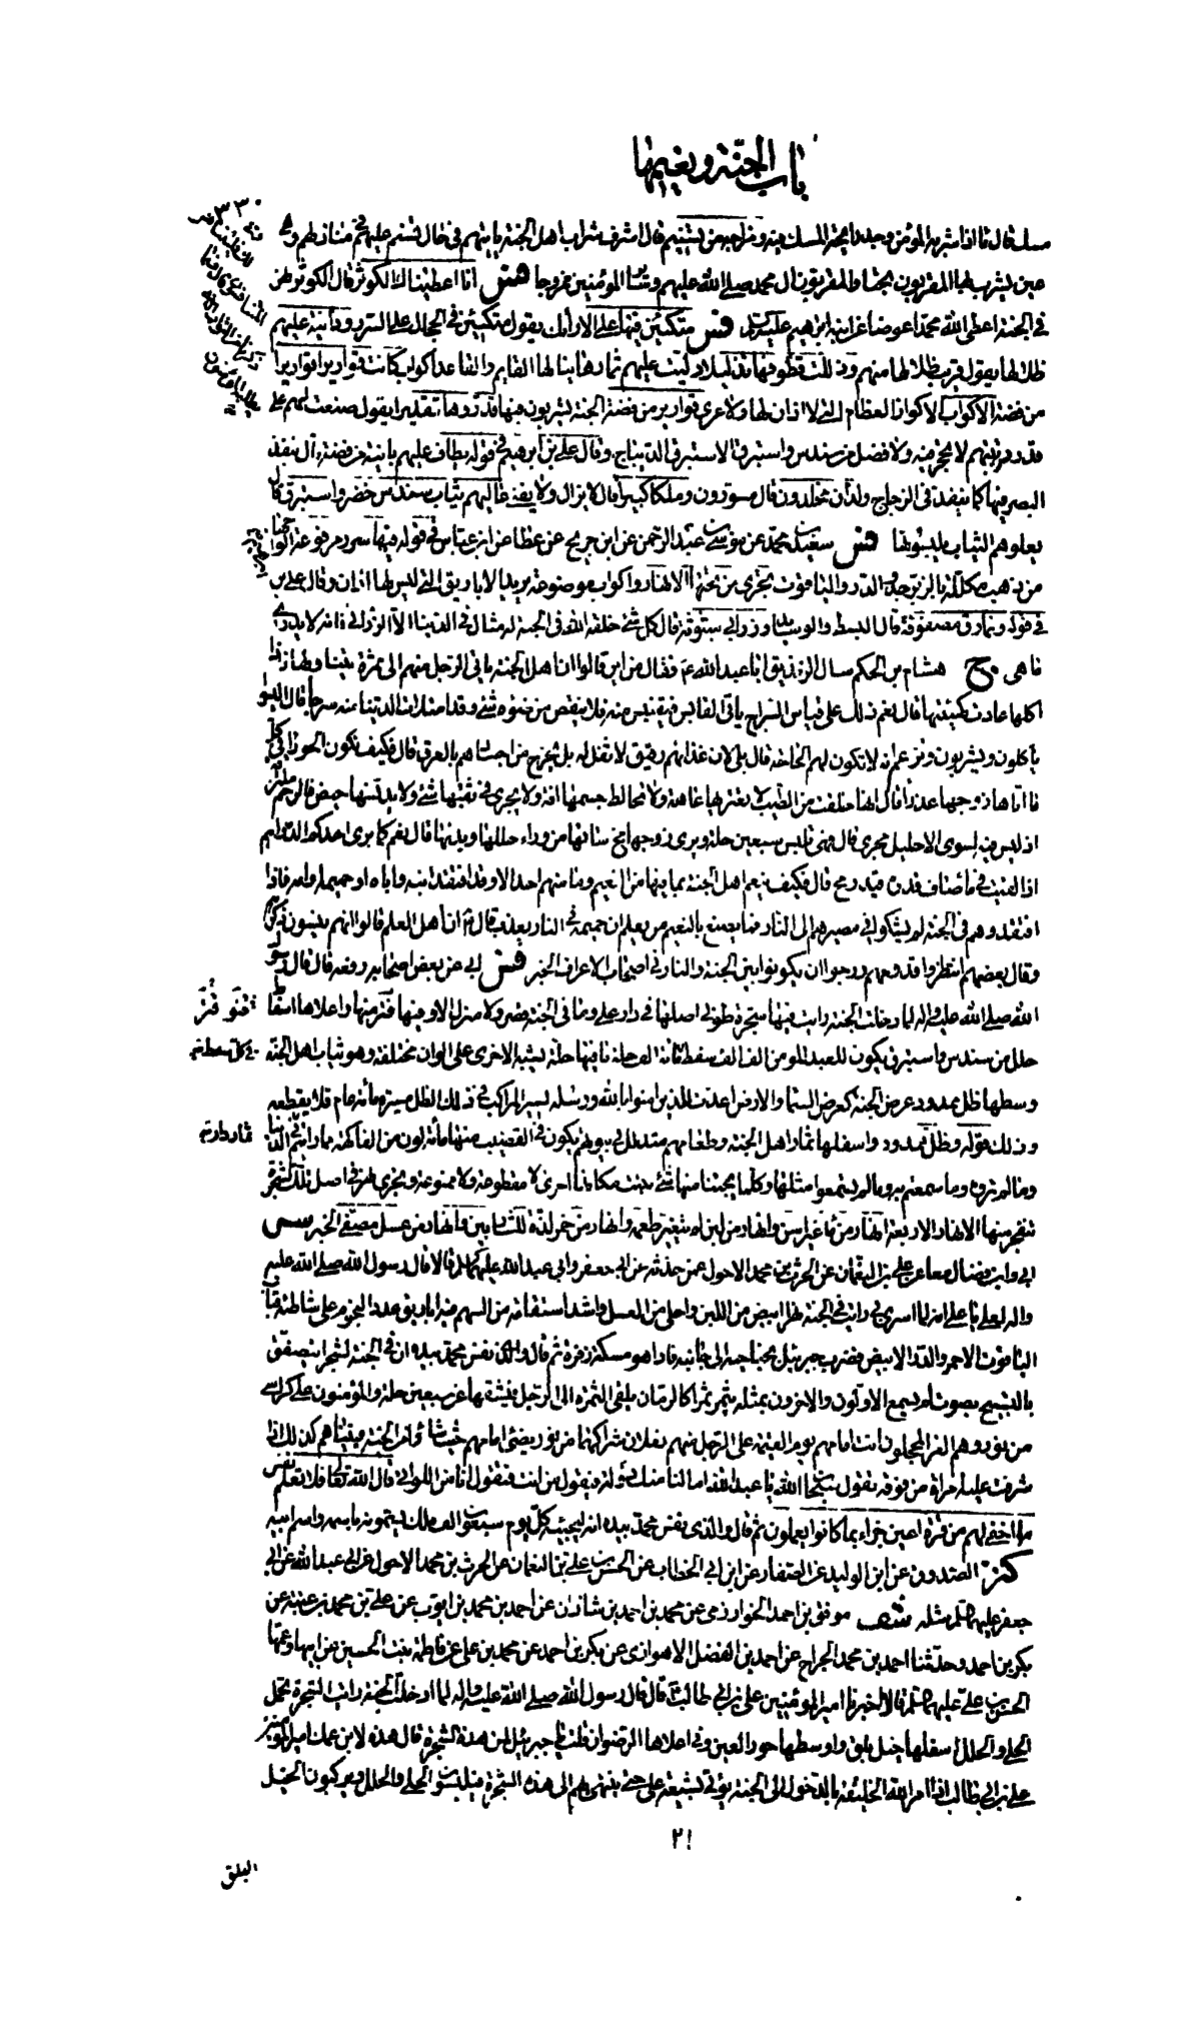 باب الجنة ونعيمها
٣٣٠
مسك قال ماء اذا شربه المؤمن وجد رايحة المسك فيه ومزاجه من تسنيم قال اشرف شراب اهل الجنة ياتيهم في عال تسنم عليهم في منازلهم وهي
عين يشرب بها المقربون بحتا والمقربون ال محمد صلى الله عليهم وساير المؤمنين ممزوجا فس انا اعطيناك الكوثر قال الكوثر نهر
في الجنة اعطى الله محمدا عوضا عن ابنه ابرهيم فس متكئين فيها على الارائك يقول متكئين في الحجال على السرر ودانية عليهم
ظلالها يقول قريب ظلالها منهم وذللت قطوفها تذليلا دليت عليهم ثمارها ينالها القايم والقاعد اكواب كانت قواريرا قواريرا
من فضة الاكواب الاكواز العظام التي لا اذان لها ولا عرى قوارير من فضة الجنة يشربون فيها قدروها تقديرا يقول صنعت لهم على
قدر رتبتهم لا تحجر فيه ولا فضل من سندس واستبرق الاستبرق الديباج وقال علي بن ابرهيم في قوله يطاف عليهم بانية من فضة قال ينفذ
البصر فيها كما ينفذ في الزجاج ولدان مخلدون قال مسورون وملكا كبيرا قال لا يزال ولا يفنى عاليهم ثياب سندس خضر واستبرق قال
يعلوهم الثياب يلبسونها فس سعيد بن محمد عن موسى بن عبد الرحمن عن ابن جريح عن عطا عن ابن عباس في قوله فيها سرر مرفوعة الواحها
من ذهب مكللة بالزبرجد والدر والياقوت تجري من تحتها الانهار واكواب موضوعة يريد الاباريق التي ليس لها اذان وقال علي بن
في قوله ونمارق مصفوفة قال البسط والوسايد وزرابي مبثوثة قال كل شئ خلقه الله في الجنة له مثال في الدنيا الا الزرابي فانه لا يدرى
ما هي ج هشام بن الحكم سال الزنديق ابا عبد الله ع فقال من اين قالوا ان اهل الجنة ياتي الرجل منهم الى ثمرة يتناولها فاذا
اكلها عادت كهيئتها قال نعم ذلك على قياس السراج ياتي القابس فيقتبس منه فلا ينقص من ضوئه شئ وقد امتلات الدنيا منه سرجا قال اليسوا
ياكلون ويشربون وتزعم انه لا تكون لهم الحاجة قال بلى لان غذاءهم رقيق لا ثقل له بل يخرج من اجسادهم بالعرق قال فكيف تكون الحوراء في كل
ما اتاها زوجها عذراء قال انها خلقت من الطيب لا يعتريها عاهة ولا تخالط جسمها افة ولا يجري في ثقبها شئ ولا يدنسها حيض فالرحم ملتزقة
اذ ليس فيه لسوى الاحليل مجرى قال فهي تلبس سبعين حلة ويرى زوجها مخ ساقها من وراء حللها وبدنها قال نعم كما يرى احدكم الدراهم
اذا القيت في ماء صاف قدره قيد رمح قال فكيف ينعم اهل الجنة بما فيها من النعيم وما منهم احد الا وقد افتقد ابنه واباه او حميمه وامه فاذا
افتقدوهم في الجنة لم يشكوا في مصيرهم الى النار فما يصنع بالنعيم من يعلم ان حميمه في النار يعذب قال ع ان اهل العلم قالوا انهم ينسون ذكرهم
وقال بعضهم انتظروا قدومهم ورجوا ان يكونوا بين الجنة والنار في اصحاب الاعراف الخبر فس ابي عن بعض اصحابه رفعه قال قال رسول
الله صلى الله عليه واله لما دخلت الجنة رايت فيها شجرة طوبى اصلها في دار علي وما في الجنة قصر ولا منزل الا وفيها فتر منها واعلاها اسفاط
حلل من سندس واستبرق يكون للعبد المؤمن الف الف سفط في كل سفط مائة الف حلة ما فيها حلة يشبه الاخرى على الوان مختلفة وهو ثياب اهل الجنة
وسطها ظل ممدود عرض الجنة كعرض السماء والارض اعدت للذين امنوا بالله ورسله يسير الراكب في ذلك الظل مسيرة مائة عام فلا يقطعه
وذلك قوله وظل ممدود واسفلها ثمار اهل الجنة وطعامهم متدلل في بيوتهم يكون في القضيب منها مائة لون من الفاكهة مما رايتم في الدنيا
ومما لم تروه وما سمعتم به وما لم تسمعوا مثلها وكلما يجتنا منها شئ نبتت مكانها اخرى لا مقطوعة ولا ممنوعة وتجري نهر في اصل تلك الشجرة
تنفجر منها الانهار الاربعة انهار من ماء غير اسن وانهار من لبن لم يتغير طعمه وانهار من خمر لذة للشاربين وانهار من عسل مصفى الخبر سن
ابي وابن فضال معا عن علي بن النعمان عن الحرث بن محمد الاحول عمن حدثه عن ابي جعفر وابي عبد الله عليهما السلام قالا قال رسول الله صلى الله عليه
واله لعلي يا علي انه لما اسري بي رايت في الجنة نهرا ابيض من اللبن واحلى من العسل واشد استقامة من السهم فيه اباريق عدد النجوم على شاطئه قباب
الياقوت الاحمر والدر الابيض فضرب جبرئيل بجناحيه الى جانبه فاذا هو مسكة ذفرة ثم قال والذي نفس محمد بيده ان في الجنة لشجرا يتصفق
بالتسبيح بصوت لم يسمع الاولون والاخرون بمثله يثمر ثمرا كالرمان يلقى الثمرة الى الرجل فيشقها عن سبعين حلة والمؤمنون على كراسي
من نور وهم الغر المحجلون انت امامهم يوم القيمة على الرجل منهم نعلان شراكهما من نور يضئ امامهم حيث شاؤا من الجنة فبيناهم كذلك اذا
شرفت عليه امراة من فوقه تقول سبحان الله يا عبد الله اما لنا منك دولة فيقول من انت فتقول انا من اللواتي قال الله تعالى فلا تعلم نفس
ما اخفي لهم من قرة اعين جزاء بما كانوا يعملون ثم قال والذي نفس محمد بيده انه ليجيئه كل يوم سبعون الف ملك يسمونه باسمه واسم ابيه
كنز الصدوق عن ابن الوليد عن الصفار عن ابن ابي الخطاب عن الحسن بن علي بن النعمان عن الحرث بن محمد الاحول عن ابي عبد الله عن ابي
جعفر عليهما السلام مثله شف موفق بن احمد الخوارزمي عن محمد بن احمد بن شاذان عن احمد بن محمد بن ايوب عن علي بن محمد بن عنبة عن
بكر بن احمد وحدثنا احمد بن محمد الجراح عن احمد بن الفضل الاهوازي عن بكر بن احمد عن محمد بن علي عن فاطمة بنت الحسين عن ابيها وعمها
الحسن بن علي عليهما السلام قالا اخبرنا امير المؤمنين علي بن ابي طالب قال قال رسول الله صلى الله عليه واله لما ادخلت الجنة رايت الشجرة تحمل
الحلي والحلل اسفلها خيل بلق واوسطها حور العين وفي اعلاها الرضوان قلت يا جبرئيل لمن هذه الشجرة قال هذه لابن عمك امير المؤمنين
علي بن ابي طالب اذا امر الله الخليقة بالدخول الى الجنة يؤتى بشيعة علي حتى ينتهي بهم الى هذه الشجرة فيلبسون الحلي والحلل ويركبون الخيل
٢١
البلق